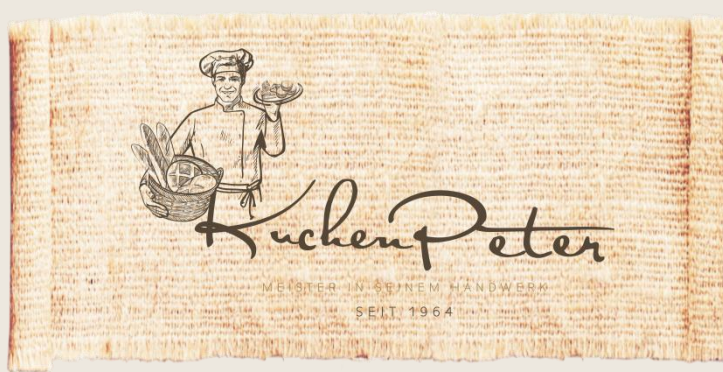 KuchenPeter
MEISTER IN SEINEM HANDWERK
SEIT 1964